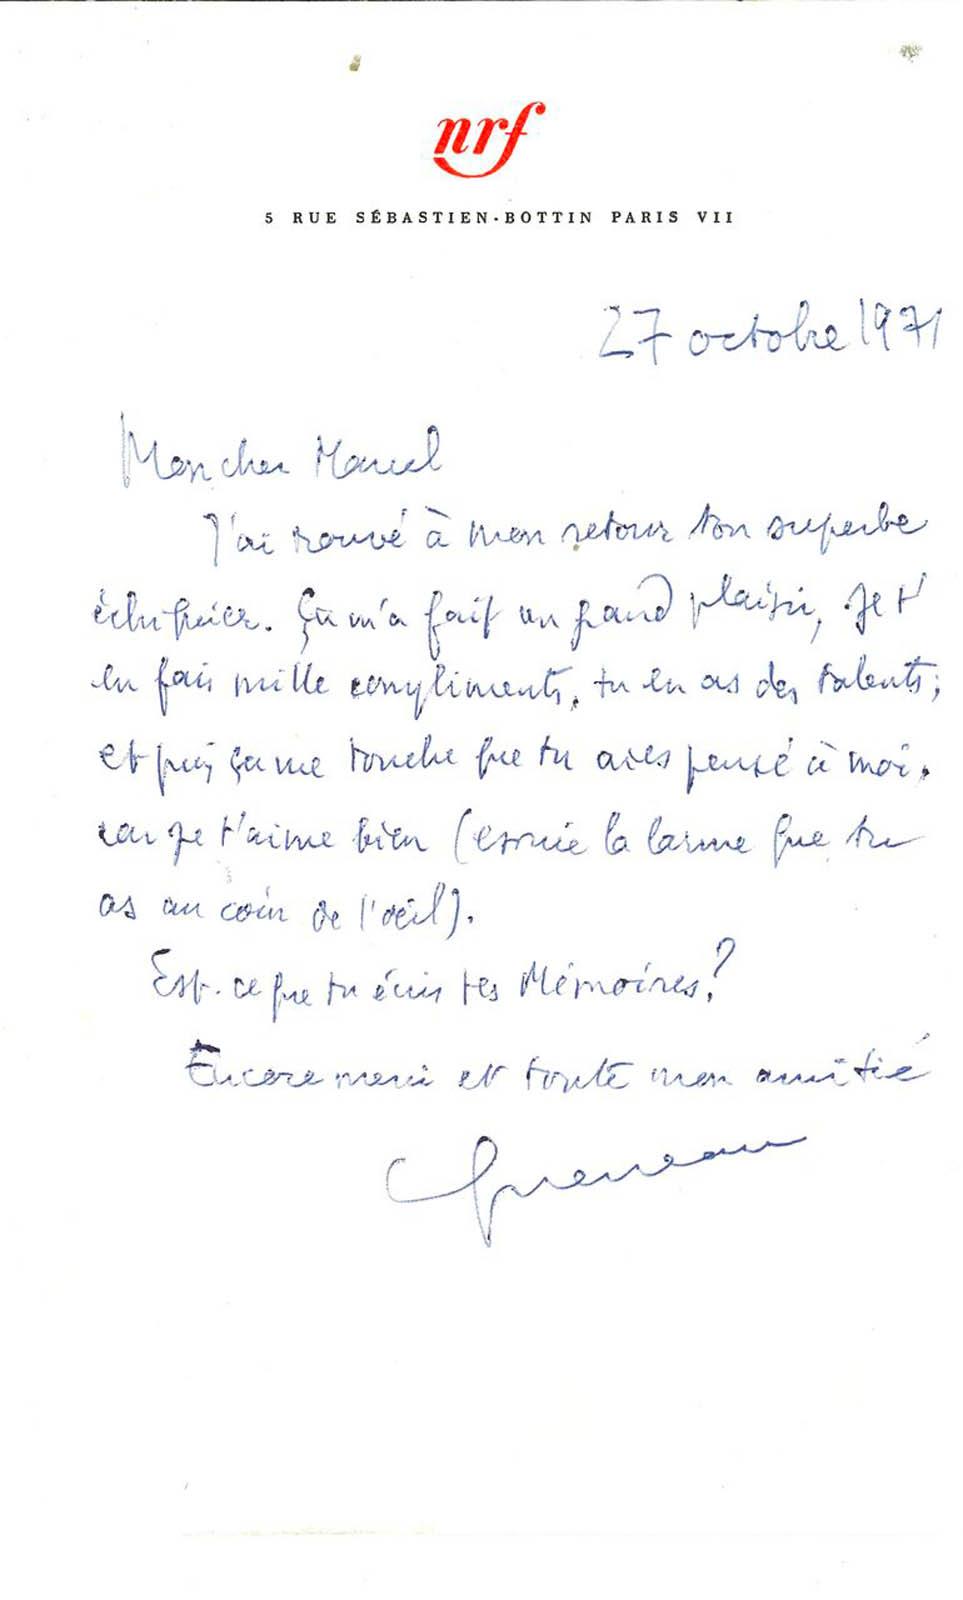 nrf
5 RUE SÉBASTIEN-BOTTIN PARIS VII
27 octobre 1971
Mon cher Marcel
J'ai trouvé à mon retour ton superbe
échiquier. Ça m'a fait un grand plaisir, je t'
en fais mille compliments, tu en as des talents;
et puis ça me touche que tu aies pensé à moi,
car je t'aime bien (essuie la larme que tu
as au coin de l'oeil).
Est-ce que tu écris tes Mémoires?
Encore merci et toute mon amitié
Queneau